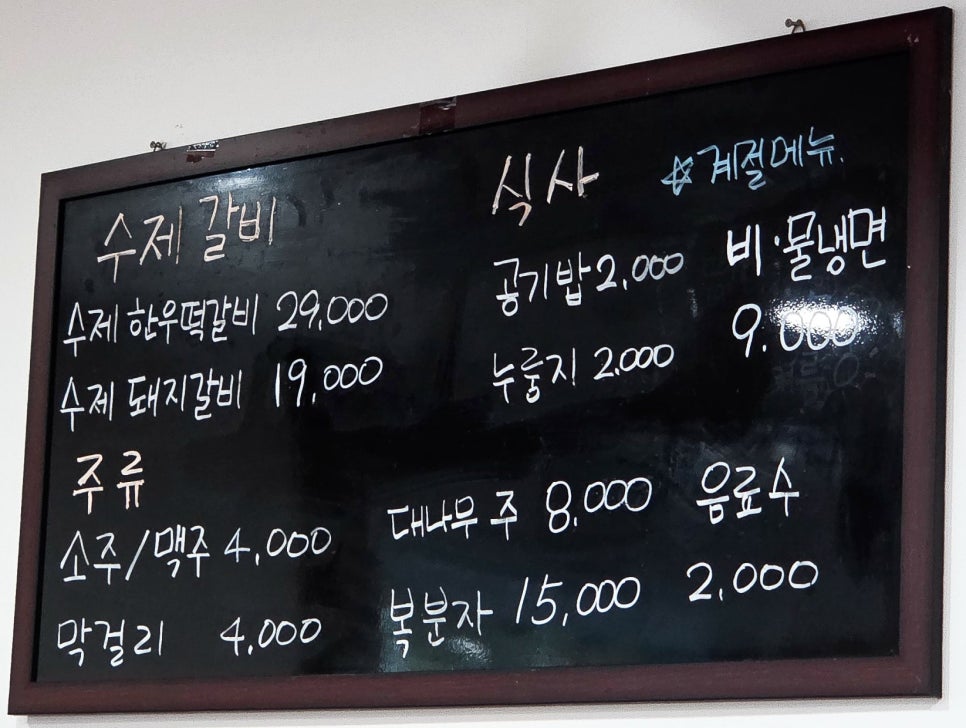 수제 갈비
수제 한우떡갈비 29,000
수제 돼지갈비 19,000
식사
공기밥 2,000
누룽지 2,000
☆계절메뉴.
비·물냉면
9.000
주류
소주/맥주 4,000
막걸리 4,000
대나무 주 8,000
복분자 15,000
음료수
2,000